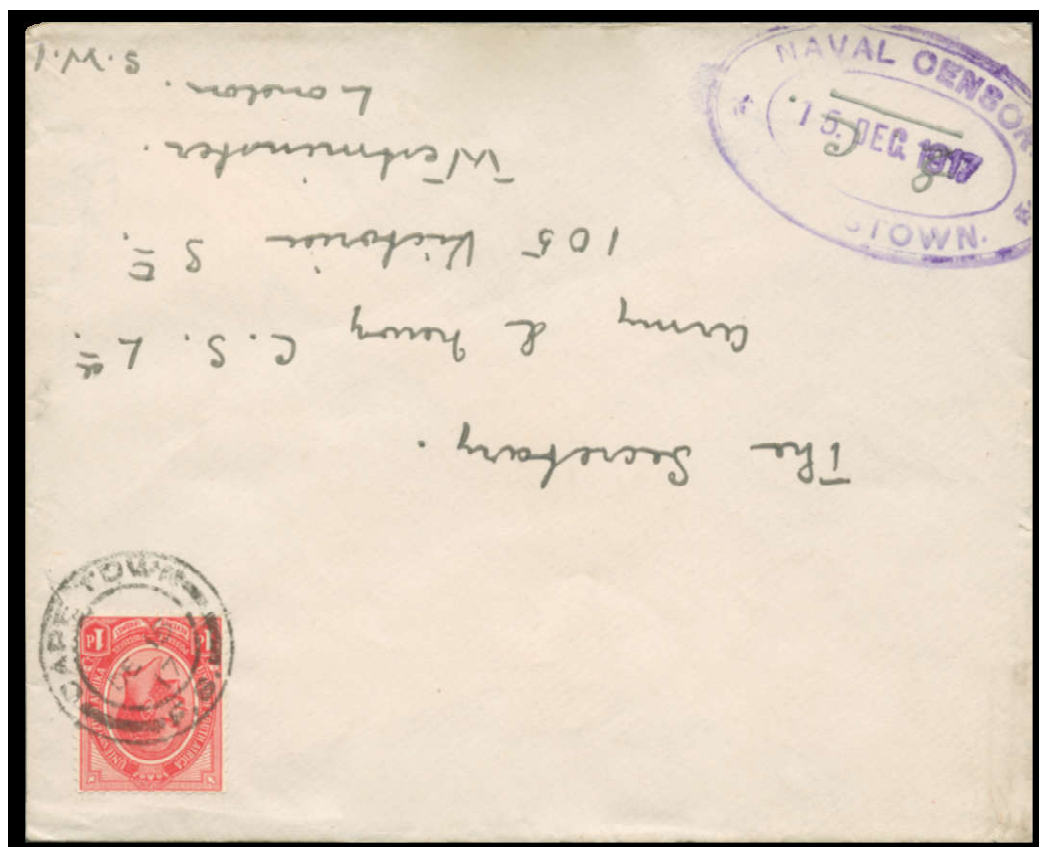 NAVAL CENSOR
15 DEC 1917
STOWN.
The Secretary.
Army & Navy C.S. Ld.
105 Victoria St.
Westminster.
London.
S.W.1
CAPE TOWN
1d 1d
SOUTH AFRICA